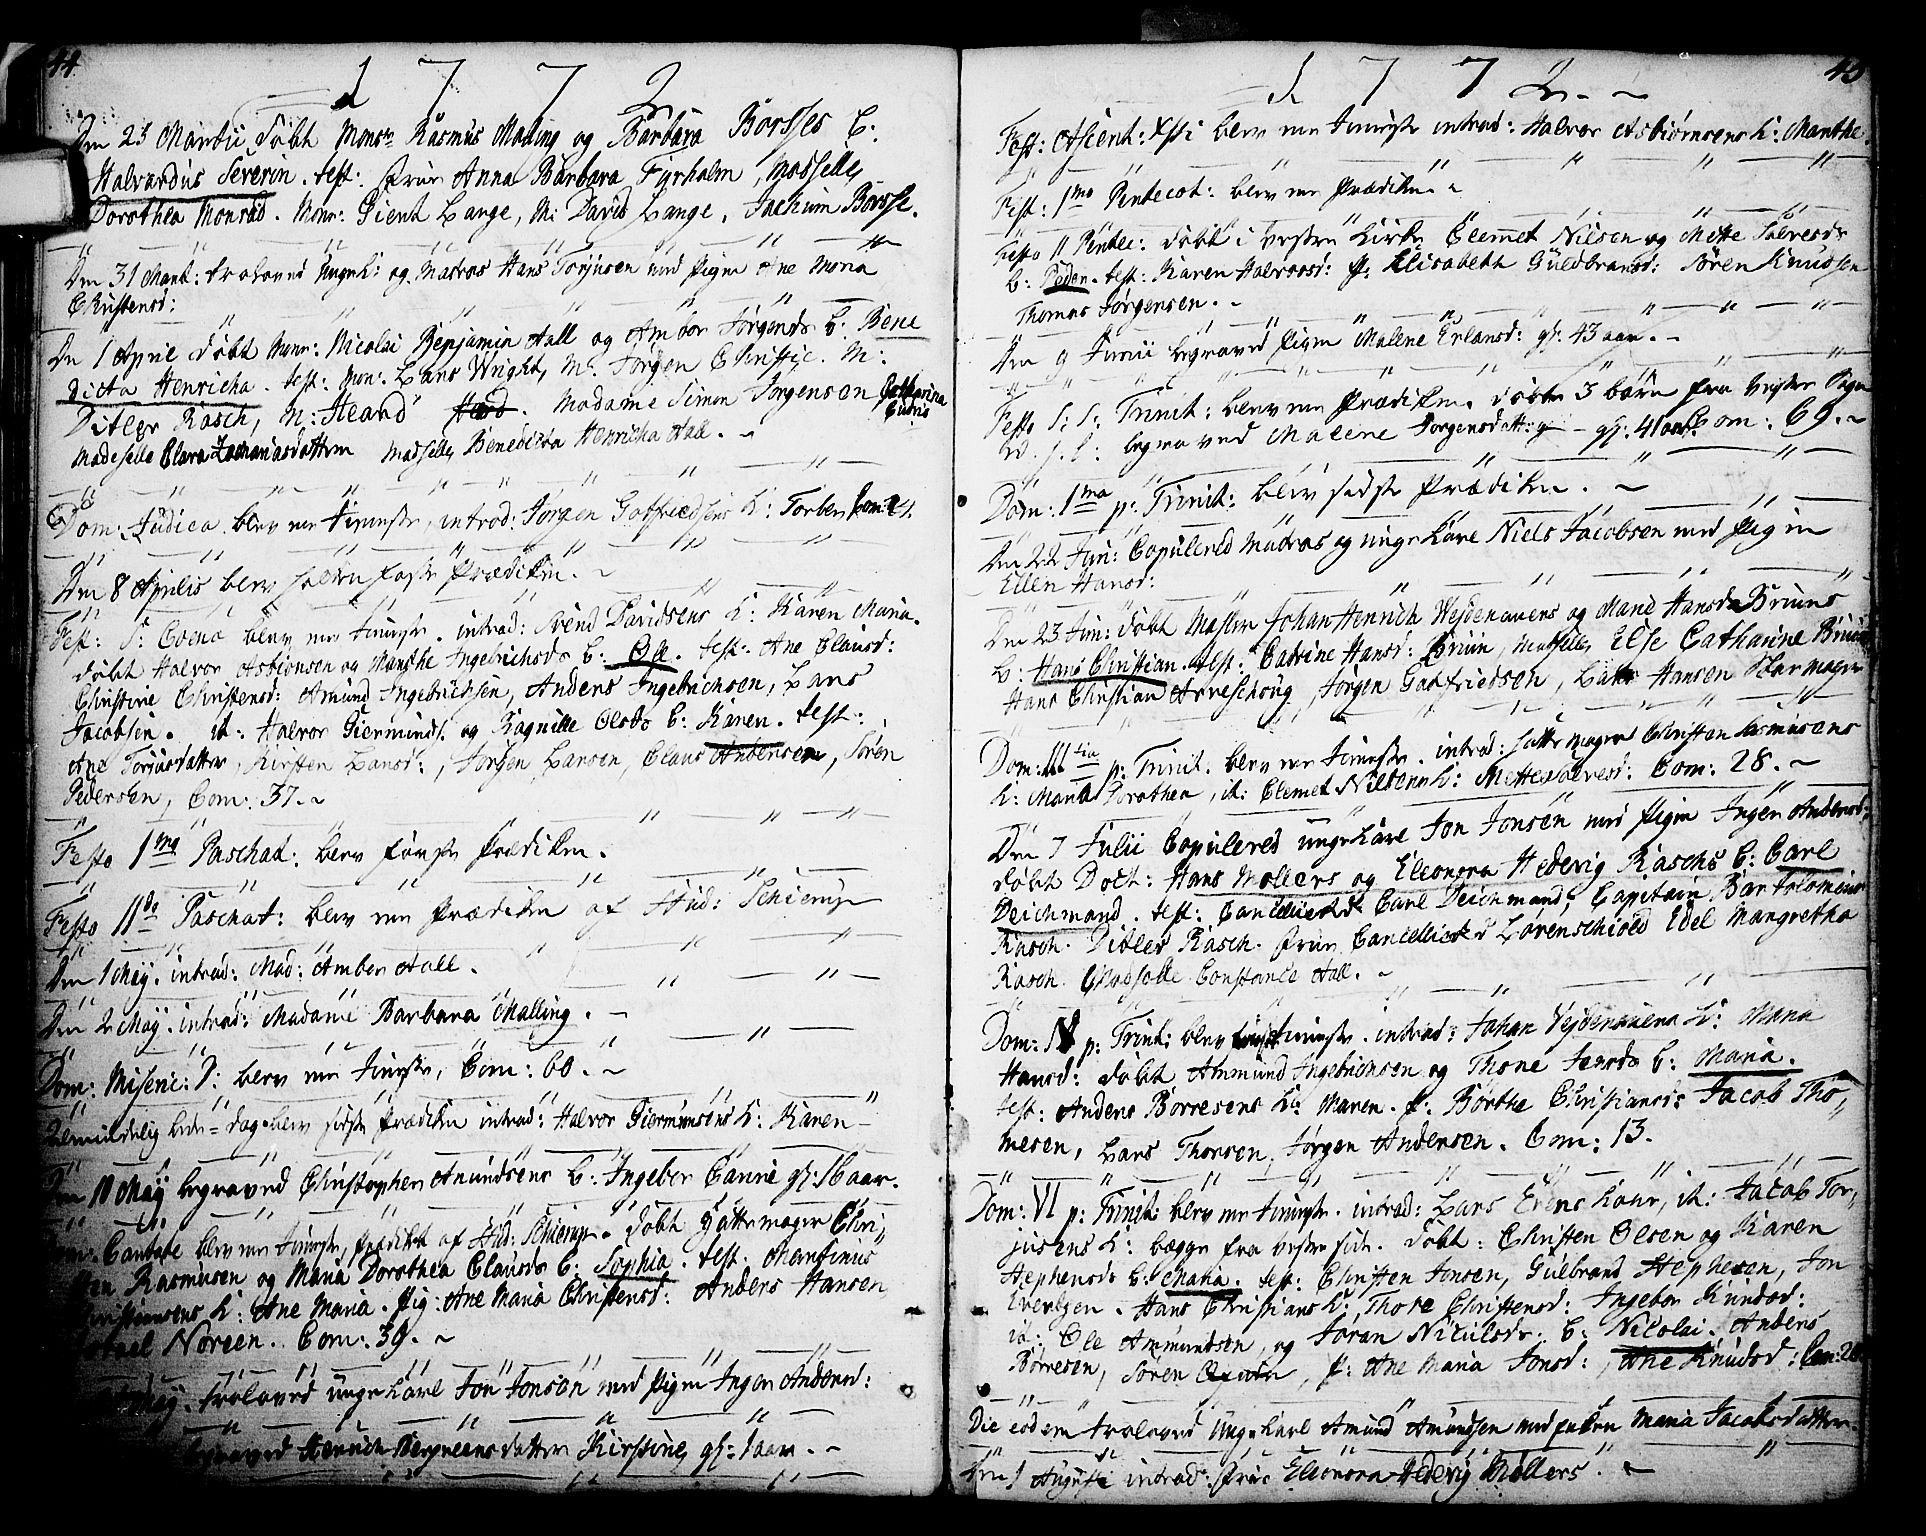 44
1 7 7 2
Den 23 Martii Døbt Monsr Rasmus Malling og Barbara Borsses b:
Halvardus Severin. test: frue Anna Barbara Fyrholm, Madselle
Dorothea Monrad. Monr: Gient Lange, M: David Lange, Jachum Borsse.
Den 31 Mart: troloved Ungk: og Madros Hans Torjusen med Pigen Ane Maria
Christensd:
Den 1 April døbt Monr: Nicolai Benjamin Aall og Ambor Jørgensds b: Bene
dicta Henricha. test: Mon: Lars Wright, M: Jørgen Christie. M:
Ditlef Rasch, M: Heard. Madame Simon Jørgensen Catharina
Madeselle Clara Zachariasdatter Madselle Benedicta Henricha Aall.
Dom: Judica blev mes: Tienest, introd: Jørgen Gotfriedsens K: Torber Com: 24.
Den 8 Aprilis blev holden faste Prædiken.
Fest: S: Coena blev me Tienest. introd: Svend Davidsens K: Karen Maria.
døbt Halvor Asbionsen og Manthe Ingebrichsds b: Ose. test: Ane Clausd:
Christine Christensd: Amund Ingebrichsen, Anders Ingebrichsen, Lars
Jacobsen. it: Halvor Giermunds. og Ragnille Olsds b: Karen. test:
Ane Torjusdatter, Kirsten Larsd:, Jørgen Larsen, Claus Andersen, Søren
Pedersen, Com: 37.
Festo 1ma Paschat: blev første Prædiken.
Festo IIda Paschat: blev me Prædiken af Stud: Schierup
Den 1 Maij. introd: Mad: Amber Aall.
Den 2 Maij. introd: Madame Barbara Malling.
Dom: Miseric: D: blev me Tienest, Com: 60.
Almindelig bede-dag blev sidste Prædiken introd: Halvor Giermunsens K: Karen
Den 10 Maij begraved Christopher Amundsens b: Ingeber Canrie gl: 16 aar.
Dom. Cantate blev me Tienest, Prædiket af Stud: Schierup. Døbt Hattemager Chri-
sten Rasmusen og Maria Dorothea Clausds b: Sophia. test. Martinus
Christensens K: Ane Maria. Pig: Ane Maria Christensd: Anders Hansen
Noreen. Com: 39.
Maij. troloved ungekarl Jon Jonsen med Pigen Inger Andersd:
begraved Henrich Bergreens datter Kirstine, gl: 1 aar.
45
1 7 7 2.
Fest: Ascent: Xsti blev me Tienest introd: Halvor Asbiørnsens K: Manthe.
Fest: 1ma Pentecot: blev me Prædiken.
Festo II Pentec: døbt i Vestre Kirke Clemet Nilsen og Mette Salvesds
b: Peder. test: Karen Halvorsd: P: Elisabeth Guldbransd: Søren Knudsen
Thomas Jørgensen.
Den 9 Junii begraved Pigen Malene Erlansd: gl: 43 aar.
Festo S: S: Trinit: blev me Prædiken. døbte 3 børn fra Vester Sogn
begraved Malene Jørgensdatter gl: 41 aar. Com: 69.
Dom: 1ma p: Trinit: blev sidste Prædiken.
Den 22 Jun: Copulered Madros og unge Karl Niels Jacobsen med Pigen
Ellen Hansd:
Den 23 Jun: døbt Mester Johan Henrich Wejdenauens og Marie Hansda Bruuns
b: Hans Christian. test: Catrine Hansd: Bruun, Madselle Else Catharine Bruun
Hans Christian Arveschoug, Jørgen Gotfriedsen, Lars Hansen Skomager
Dom: IIItia p: Trinit. blev me Tienest. introd: Hattemager Christen Rasmusens
K: Maria Dorothea, it: Clemet Nilsens K: Mette Salvesd: Com: 28.
Den 7 Julii Copulered ungekarl Jon Jonsen med Pigen Inger Andersd:
døbt Doct: Hans Møllers og Eleonora Hedevig Raschs b: Carl
Deichmand. test: Cancelliert Carl Deichmand, Capitain Bartolomeus
Rasch. Ditlef Rasch. frue Cancelliert Lovenschiold Edel Margretha
Rasch. Madselle Constance Aall.
Dom: IV p: Trinit: blev Tienest. introd: Johan Vejdenauens K: Maria
Hansd: døbt Ammund Ingebrichsen og Thone Jensds b: Maria.
test: Anders Børresens K: Maren. P: Børthe Christiansd: Jacob Tho-
mesen, Lars Thorsen, Jørgen Andersen. Com: 13.
Dom: VI p: Trinit: blev me Tienest. introd: Lars Erens Kone, it: Jacob Tor-
jusens K: begge fra vestre side. Døbt: Christen Olsen og Karen
Stephensds b: Maria. test: Christen Jonsen, Gulbrand Stephesen, Jon
Evertzen. Hans Christians K: Thore Christensd: Ingebor Knudsd:
it: Ole Ammundsen, og Jøran Niculsds. b: Nicolai. Anders
Børresen, Søren, P: Ane Maria Jonsd:, Ane Knudsd: Com: 26
Die eodem troloved Unge-karl Amund Amundsen med Maria Jacobsdatter.
Den 1 Augusti introd: frue Eleonora Hedevig Møllers.